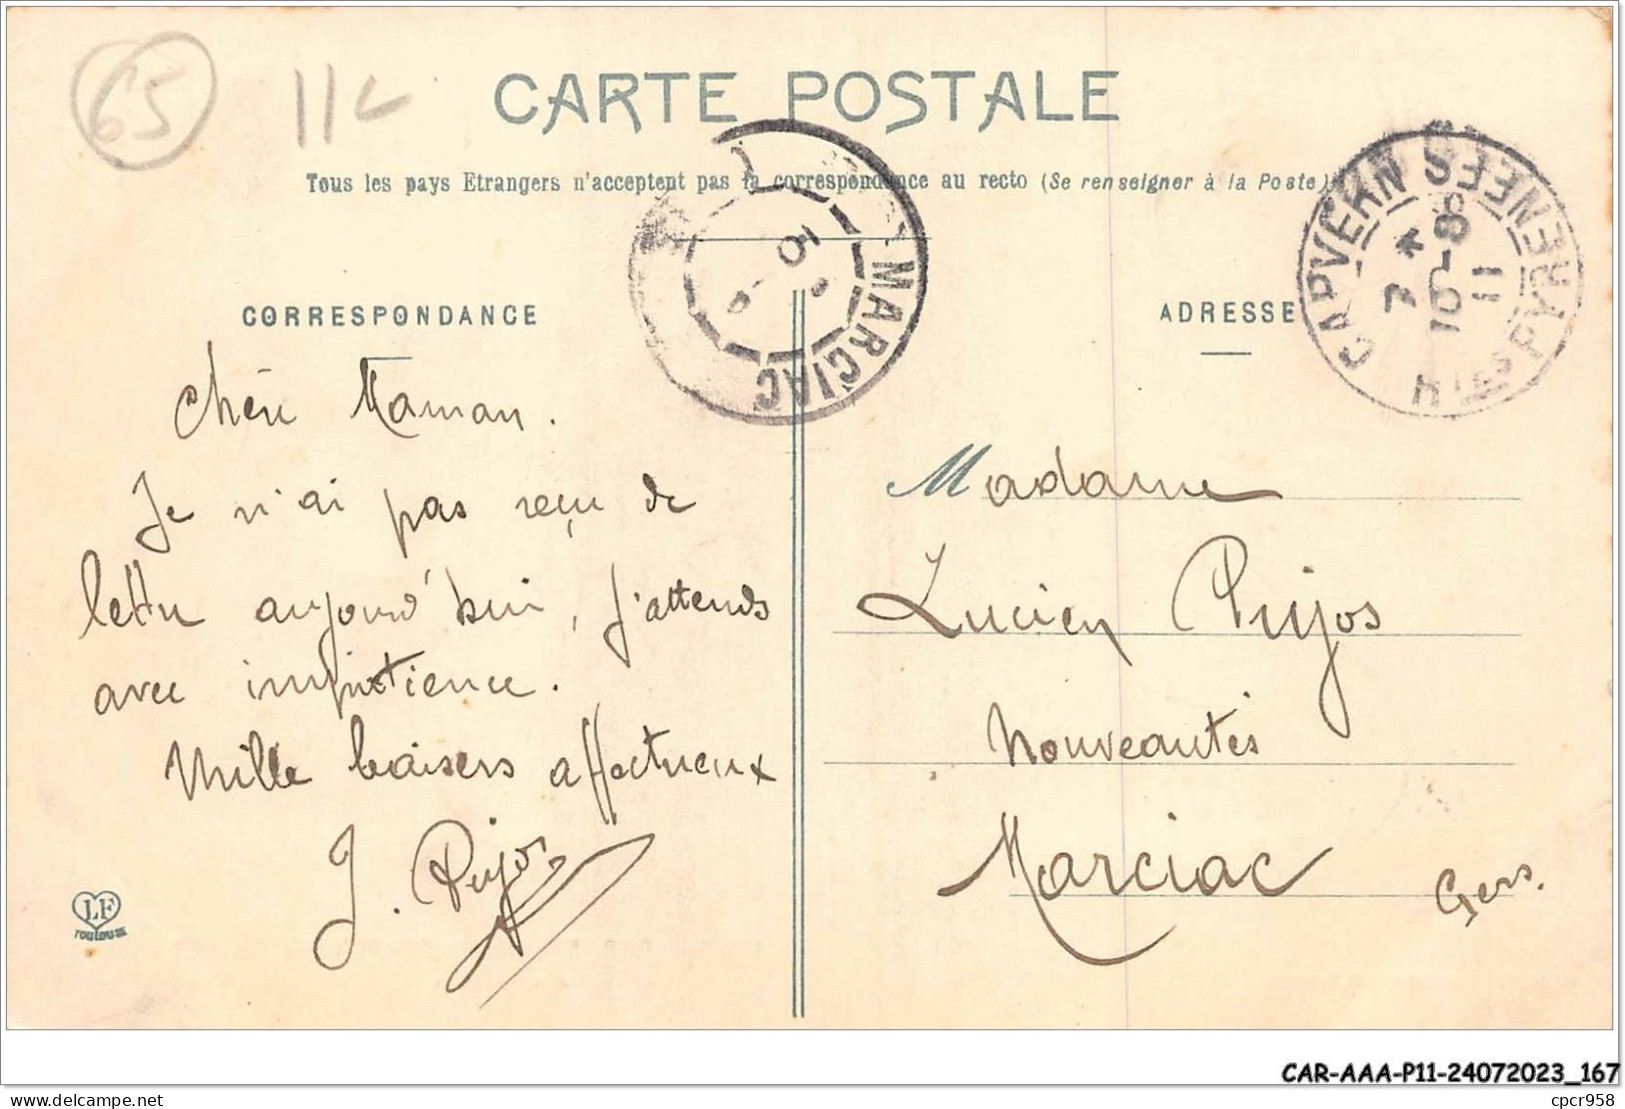 65
11
CARTE POSTALE
Tous les pays Etrangers n'acceptent pas la correspondance au recto (Se renseigner à la Poste)
MARCIAC
10
CAPVERN
HTES PYRENEES
7 *
10-8
11
CORRESPONDANCE
ADRESSE
Chère Maman.
Je n'ai pas reçu de
lettre aujourd'hui, j'attends
avec impatience.
Mille baisers affectueux
J. Pujos
LF
TOULOUSE
Madame
Lucien Pujos
Nouveautés
Marciac
Gers.
CAR-AAA-P11-24072023_167
delcampe.net
cpcr958